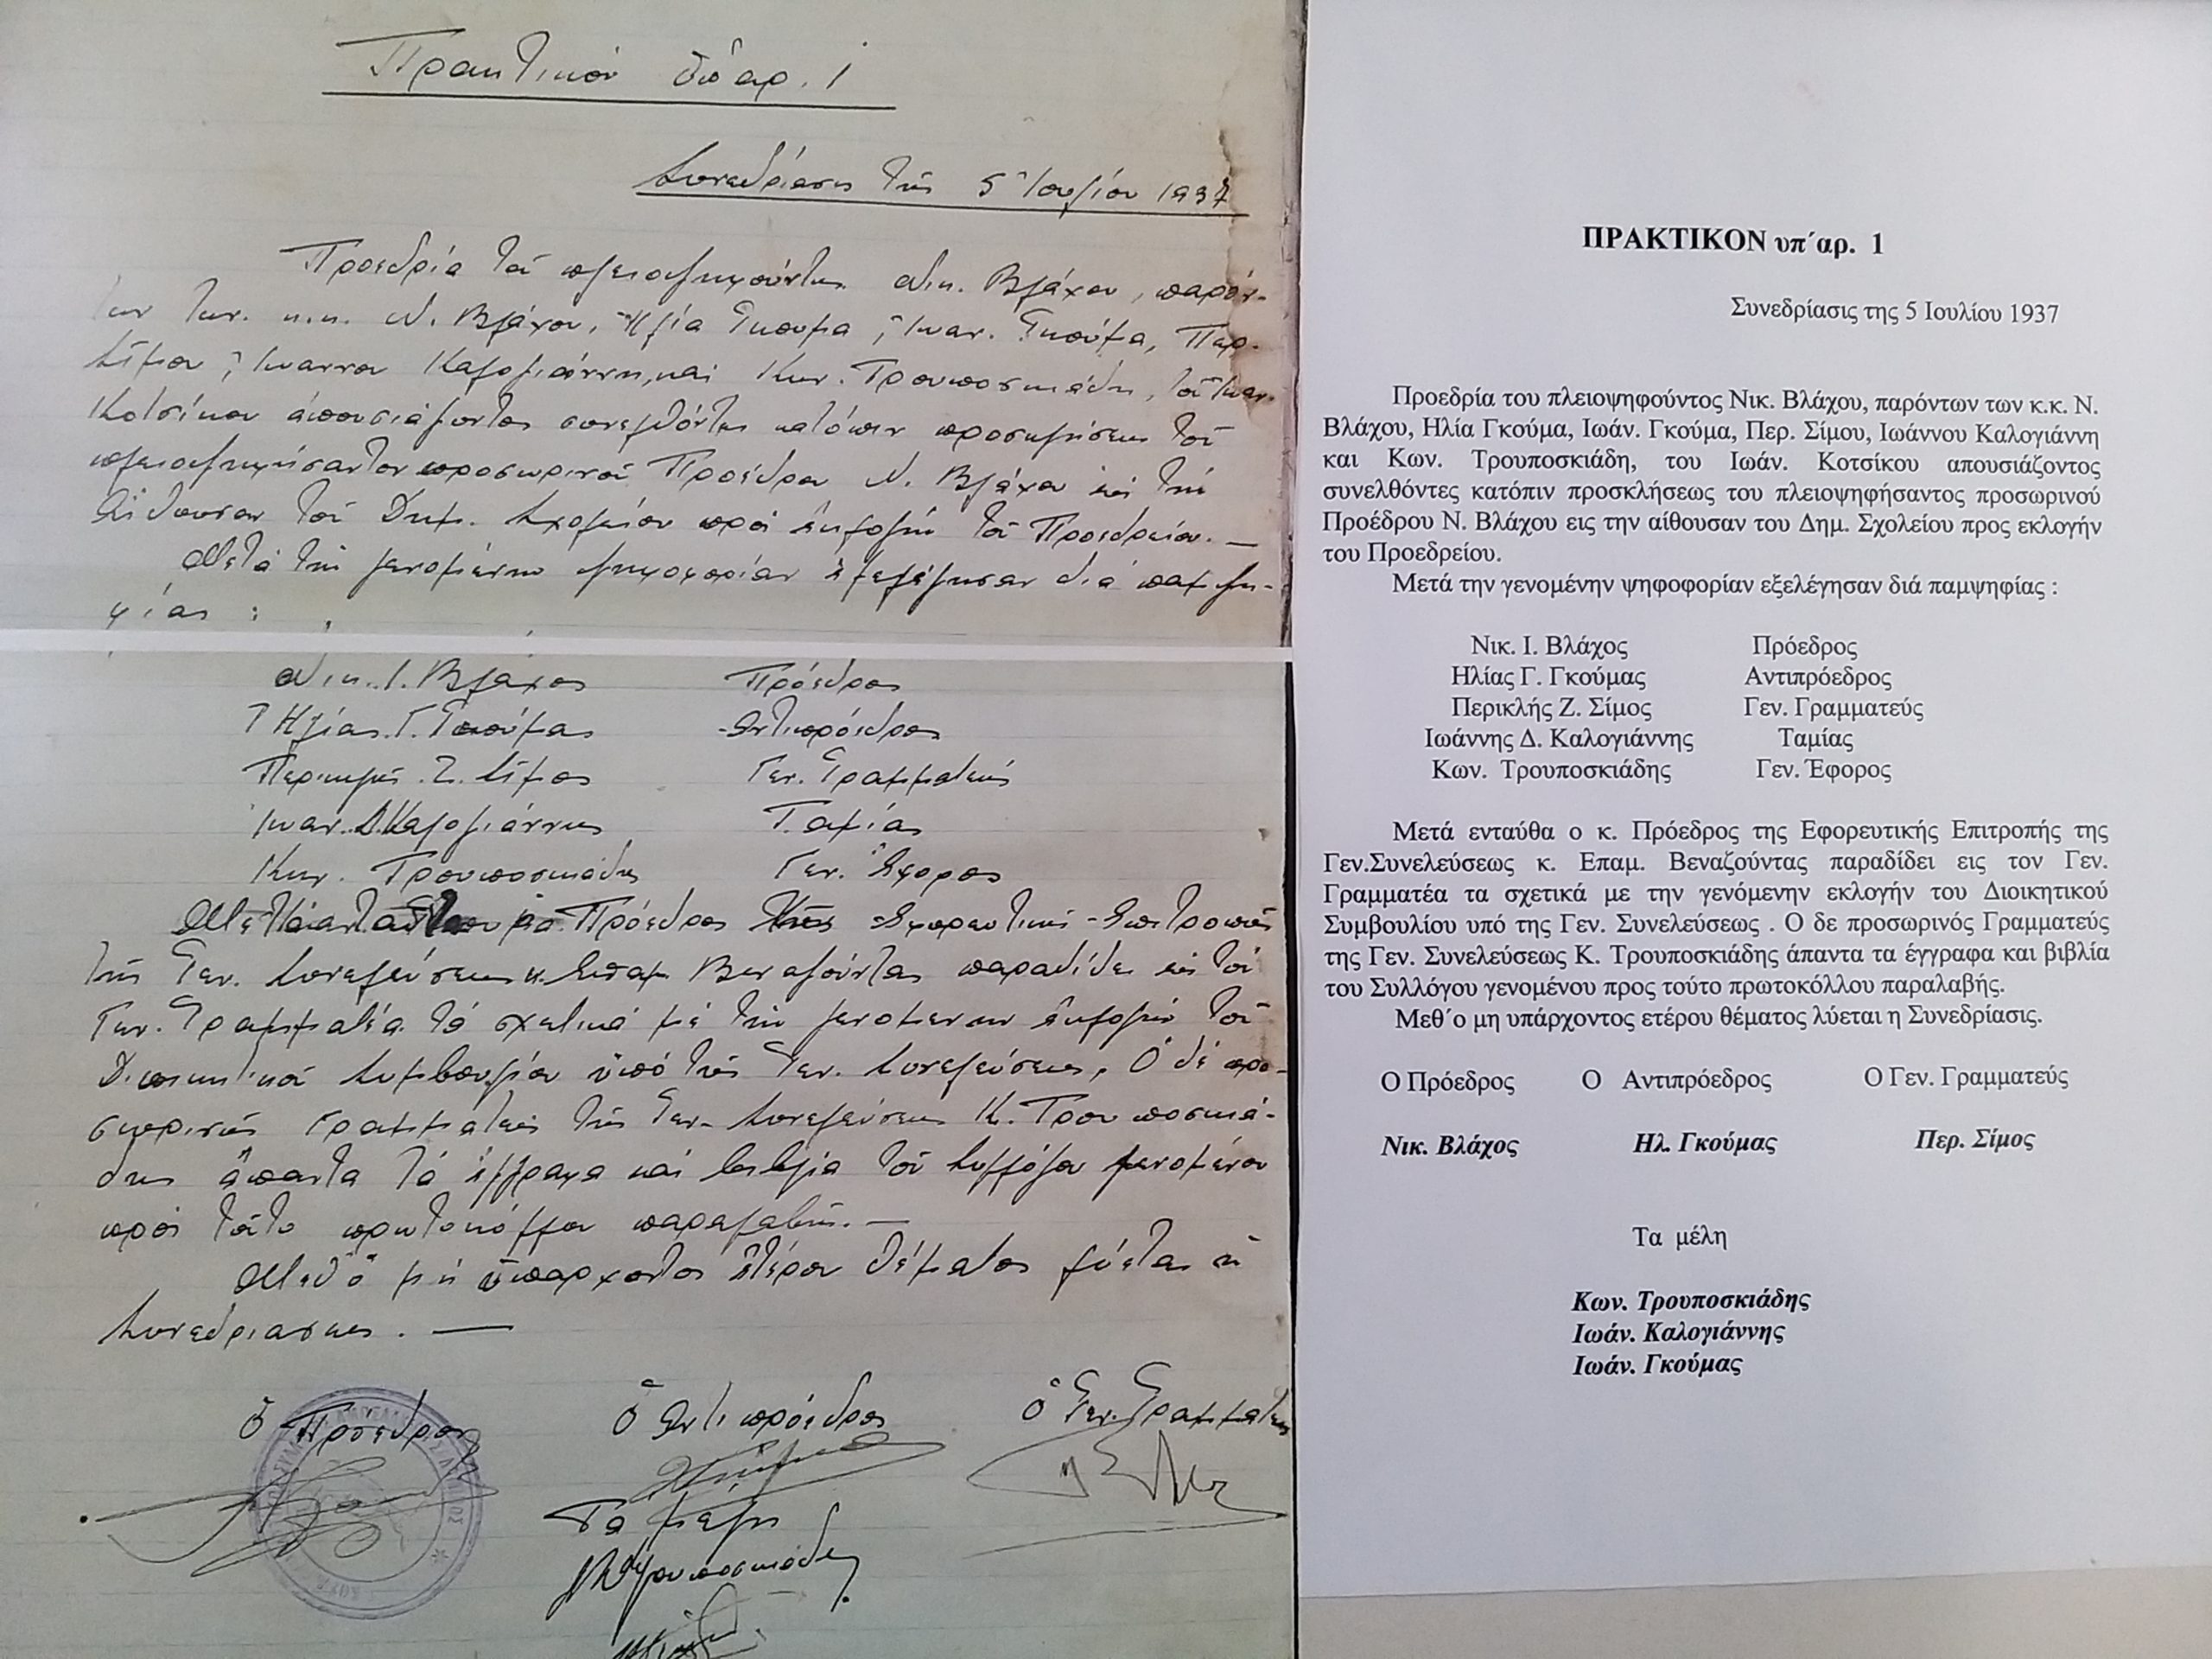 Πρακτικόν ὑπ' αρ. 1
Συνεδρίασις τῆς 5 Ἰουλίου 1937
Προεδρία τοῦ πλειοψηφούντος Νικ. Βλάχου, παρόν-
των των κ.κ. Ν. Βλάχου, Ἠλία Γκουμα, Ἰωαν. Γκούμα, Περ.
Σίμου, Ἰωαννου Καλογιάννη, καί Κων. Τρουποσκιάδη, τοῦ Ιωαν.
Κοτσίκου ἀπουσιάζοντος συνελθόντες κατόπιν προσκλήσεως τοῦ
πλειοψηφήσαντος προσωρινοῦ Προέδρου Ν. Βλάχου εἰς τήν
αἴθουσαν τοῦ Δημ. Σχολείου πρός ἐκλογήν τοῦ Προεδρείου. —
Μετά τήν γενομένην ψηφοφορίαν ἐξελέγησαν διά παμψη-
φίας :
Νικ. Ι. Βλάχος Πρόεδρος
Ἠλίας Γ. Γκούμας Αντιπρόεδρος
Περικλῆς Ζ. Σίμος Γεν. Γραμματεύς
Ιωαν. Δ. Καλογιάννης Ταμίας
Κων. Τρουποσκιάδης Γεν. Ἔφορος
Πρόεδρος τῆς Εφορευτικῆς Επιτροπῆς
τῆς Γεν. Συνελεύσεως κ. Επαμ. Βεναζούντας παραδίδει εἰς τόν
Γεν. Γραμματέα τά σχετικά μέ τήν γενομενην ἐκλογήν τοῦ
Διοικητικοῦ Συμβουλίου ὑπό τῆς Γεν. Συνελεύσεως, Ὁ δέ προ-
σωρινός Γραμματεύς τῆς Γεν. Συνελεύσεως Κ. Τρουποσκιά-
δης ἅπαντα τά ἔγγραφα καί βιβλία τοῦ Συλλόγου γενομένου
πρός τοῦτο πρωτοκόλλου παραλαβῆς. —
Μεθ' ὅ μή ὑπαρχοντος ἑτέρου θέματος λύεται ἡ
Συνεδριασις. —
Ὁ Πρόεδρος Ὁ Αντιπρόεδρος Ὁ Γεν. Γραμματεύς
Τα μέλη
Κ Τρουποσκιάδης
ΠΡΑΚΤΙΚΟΝ υπ΄αρ. 1
Συνεδρίασις της 5 Ιουλίου 1937
Προεδρία του πλειοψηφούντος Νικ. Βλάχου, παρόντων των κ.κ. Ν.
Βλάχου, Ηλία Γκούμα, Ιωάν. Γκούμα, Περ. Σίμου, Ιωάννου Καλογιάννη
και Κων. Τρουποσκιάδη, του Ιωάν. Κοτσίκου απουσιάζοντος
συνελθόντες κατόπιν προσκλήσεως του πλειοψηφήσαντος προσωρινού
Προέδρου Ν. Βλάχου εις την αίθουσαν του Δημ. Σχολείου προς εκλογήν
του Προεδρείου.
Μετά την γενομένην ψηφοφορίαν εξελέγησαν διά παμψηφίας :
Νικ. Ι. Βλάχος Πρόεδρος
Ηλίας Γ. Γκούμας Αντιπρόεδρος
Περικλής Ζ. Σίμος Γεν. Γραμματεύς
Ιωάννης Δ. Καλογιάννης Ταμίας
Κων. Τρουποσκιάδης Γεν. Έφορος
Μετά ενταύθα ο κ. Πρόεδρος της Εφορευτικής Επιτροπής της
Γεν.Συνελεύσεως κ. Επαμ. Βεναζούντας παραδίδει εις τον Γεν.
Γραμματέα τα σχετικά με την γενόμενην εκλογήν του Διοικητικού
Συμβουλίου υπό της Γεν. Συνελεύσεως . Ο δε προσωρινός Γραμματεύς
της Γεν. Συνελεύσεως Κ. Τρουποσκιάδης άπαντα τα έγγραφα και βιβλία
του Συλλόγου γενομένου προς τούτο πρωτοκόλλου παραλαβής.
Μεθ΄ο μη υπάρχοντος ετέρου θέματος λύεται η Συνεδρίασις.
Ο Πρόεδρος Ο Αντιπρόεδρος Ο Γεν. Γραμματεύς
Νικ. Βλάχος Ηλ. Γκούμας Περ. Σίμος
Τα μέλη
Κων. Τρουποσκιάδης
Ιωάν. Καλογιάννης
Ιωάν. Γκούμας